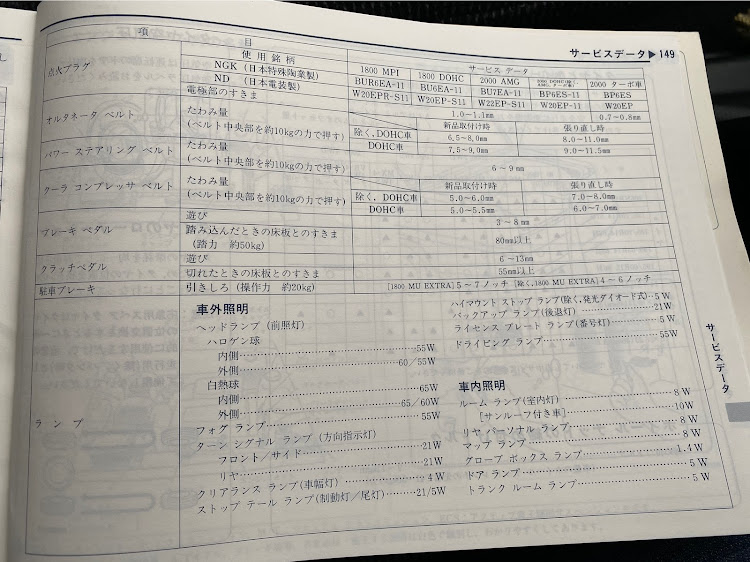 サービスデータ▶149
項 目
サービス データ
点火プラグ
使用銘柄
1800 MPI 1800 DOHC 2000 AMG 2000 ターボ車
NGK (日本特殊陶業製) BUR6EA-11 BU6EA-11 BU7EA-11 BP6ES-11 BP6ES
ND (日本電装製) W20EPR-S11 W20EP-S11 W22EP-S11 W20EP-11 W20EP
電極部のすきま 1.0～1.1mm 0.7～0.8mm
オルタネータ ベルト たわみ量
(ベルト中央部を約10kgの力で押す)
新品取付け時 張り直し時
除く, DOHC車 6.5～8.0mm 8.0～11.0mm
DOHC車 7.5～9.0mm 9.0～11.5mm
パワー ステアリング ベルト たわみ量
(ベルト中央部を約10kgの力で押す) 6～9mm
クーラ コンプレッサ ベルト たわみ量
(ベルト中央部を約10kgの力で押す)
新品取付け時 張り直し時
除く, DOHC車 5.0～6.0mm 7.0～8.0mm
DOHC車 5.0～5.5mm 6.0～7.0mm
ブレーキ ペダル 遊び 3～8mm
踏み込んだときの床板とのすきま
(踏力 約50kg) 80mm以上
クラッチペダル 遊び 6～13mm
切れたときの床板とのすきま 55mm以上
駐車ブレーキ 引きしろ (操作力 約20kg) [1800 MU EXTRA] 5～7ノッチ [除く, 1800 MU EXTRA] 4～6ノッチ
ランプ
車外照明
ヘッドランプ (前照灯)
ハロゲン球
内側……55W
外側……60/55W
白熱球……65W
内側……65/60W
外側……55W
フォグ ランプ
ターン シグナル ランプ (方向指示灯)
フロント/サイド……21W
リヤ……21W
クリアランス ランプ(車幅灯)……4W
ストップ テール ランプ(制動灯/尾灯)……21/5W
ハイマウント ストップ ランプ(除く, 発光ダイオード式)…5W
バックアップ ランプ(後退灯)……21W
ライセンス プレート ランプ(番号灯)……5W
ドライビング ランプ……55W
車内照明
ルーム ランプ(室内灯)……8W
[サンルーフ付き車]……10W
リヤ パーソナル ランプ……8W
マップ ランプ……8W
グローブ ボックス ランプ……1.4W
ドア ランプ……5W
トランク ルーム ランプ……5W
サービスデータ